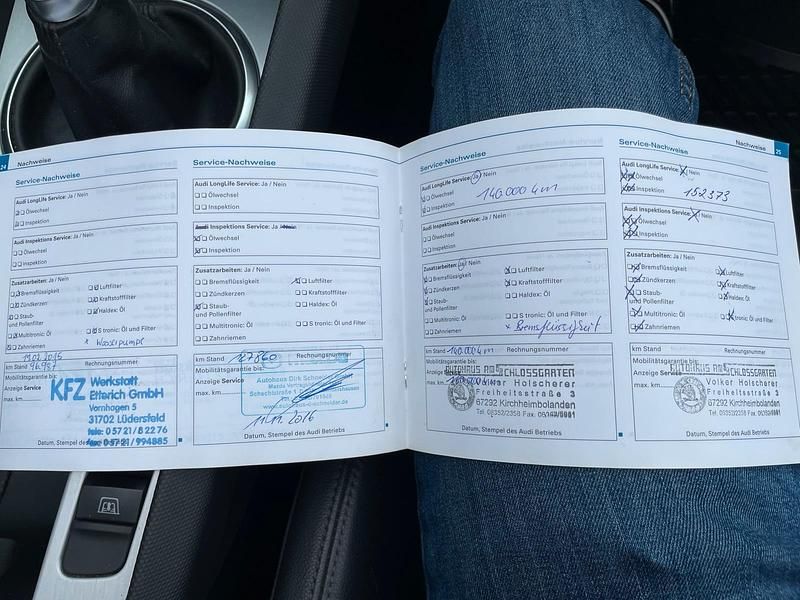 24 Nachweise
Service-Nachweise
Audi LongLife Service: Ja / Nein
Ölwechsel
Inspektion
Audi Inspektions Service: Ja / Nein
Ölwechsel
Inspektion
Zusatzarbeiten: Ja / Nein
Bremsflüssigkeit
Luftfilter
Zündkerzen
Kraftstofffilter
Staub-
und Pollenfilter
Haldex: Öl
Multitronic: Öl
S tronic: Öl und Filter
Zahnriemen
x Wasserpumpe
km Stand
Rechnungsnummer
Mobilitätsgarantie bis:
Anzeige Service
max. km
KFZ Werkstatt
Etterich GmbH
Vornhagen 5
31702 Lüdersfeld
tele: 05721/82276
fax: 05721/994885
Datum, Stempel des Audi Betriebs
Service-Nachweise
Audi LongLife Service: Ja / Nein
Ölwechsel
Inspektion
Audi Inspektions Service: Ja / Nein
Ölwechsel
Inspektion
Zusatzarbeiten: Ja / Nein
Bremsflüssigkeit
Luftfilter
Zündkerzen
Kraftstofffilter
Staub-
und Pollenfilter
Haldex: Öl
Multitronic: Öl
S tronic: Öl und Filter
Zahnriemen
km Stand 127860
Rechnungsnummer
Mobilitätsgarantie bis:
Anzeige Service
max. km
Autohaus Dirk Schneider
Datum, Stempel des Audi Betriebs
Service-Nachweise
Audi LongLife Service: Ja / Nein
Ölwechsel
Inspektion
140.000 km
Audi Inspektions Service: Ja / Nein
Ölwechsel
Inspektion
Zusatzarbeiten: Ja / Nein
Bremsflüssigkeit
Luftfilter
Zündkerzen
Kraftstofffilter
Staub-
und Pollenfilter
Haldex: Öl
Multitronic: Öl
S tronic: Öl und Filter
Zahnriemen
x Bremsflüssigkeit
km Stand 140.000 km
Rechnungsnummer
Mobilitätsgarantie bis:
Anzeige Service
max. km
AUTOHAUS AM SCHLOSSGARTEN
Volker Holscherer
Freiheitsstraße 3
67292 Kirchheimbolanden
Datum, Stempel des Audi Betriebs
Nachweise 25
Service-Nachweise
Audi LongLife Service: Ja / Nein
Ölwechsel
Inspektion
152373
Audi Inspektions Service: Ja / Nein
Ölwechsel
Inspektion
Zusatzarbeiten: Ja / Nein
Bremsflüssigkeit
Luftfilter
Zündkerzen
Kraftstofffilter
Staub-
und Pollenfilter
Haldex: Öl
Multitronic: Öl
S tronic: Öl und Filter
Zahnriemen
km Stand
Rechnungsnummer
Mobilitätsgarantie bis:
Anzeige Service
max. km
AUTOHAUS AM SCHLOSSGARTEN
Volker Holscherer
Freiheitsstraße 3
67292 Kirchheimbolanden
Datum, Stempel des Audi Betriebs